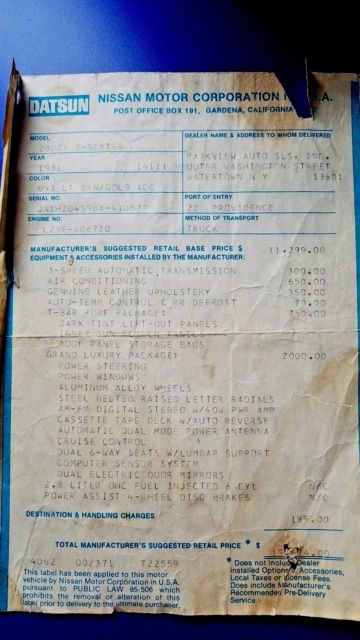 DATSUN NISSAN MOTOR CORPORATION .A.
POST OFFICE BOX 191, GARDENA, CALIFORNIA
MODEL
280ZX 2-SEATER
DEALER NAME & ADDRESS TO WHOM DELIVERED
YEAR
1981 14111
PARKVIEW AUTO SLS. INC.
OUTER WASHINGTON STREET
WATERTOWN N Y 13601
COLOR
LT BRN/GOLD ACC
SERIAL NO.
PORT OF ENTRY
22 PROVIDENCE
ENGINE NO.
L28E-
METHOD OF TRANSPORT
TRUCK
MANUFACTURER'S SUGGESTED RETAIL BASE PRICE $ 11,299.00
EQUIPMENT & ACCESSORIES INSTALLED BY THE MANUFACTURER:
3-SPEED AUTOMATIC TRANSMISSION 300.00
AIR CONDITIONING 650.00
GENUINE LEATHER UPHOLSTERY 350.00
AUTO-TEMP CONTROL & RR DEFROST 70.00
T-BAR ROOF PACKAGE: 750.00
DARK-TINT LIFT-OUT PANELS
PANELS
ROOF PANEL STORAGE BAGS
GRAND LUXURY PACKAGE: 2000.00
POWER STEERING
POWER WINDOWS
ALUMINUM ALLOY WHEELS
STEEL BELTED RAISED LETTER RADIALS
AM-FM DIGITAL STEREO W/40W PWR AMP
CASSETTE TAPE DECK W/AUTO REVERSE
AUTOMATIC DUAL MODE POWER ANTENNA
CRUISE CONTROL
DUAL 6-WAY SEATS W/LUMBAR SUPPORT
COMPUTER SENSOR SYSTEM
DUAL ELECTRIC DOOR MIRRORS
2.8 LITER OHC FUEL INJECTED 6 CYL N/C
POWER ASSIST 4-WHEEL DISC BRAKES N/C
DESTINATION & HANDLING CHARGES
195.00
TOTAL MANUFACTURER'S SUGGESTED RETAIL PRICE * $
4062 002371 722559
This label has been applied to this motor
vehicle by Nissan Motor Corporation in U.S.A.
pursuant to PUBLIC LAW 85-506 which
prohibits the removal or alteration of this
label prior to delivery to the ultimate purchaser.
* Does not include Dealer
Installed Options & Accessories,
Local Taxes or License Fees.
Does include Manufacturer's
Recommended Pre-Delivery
Service.